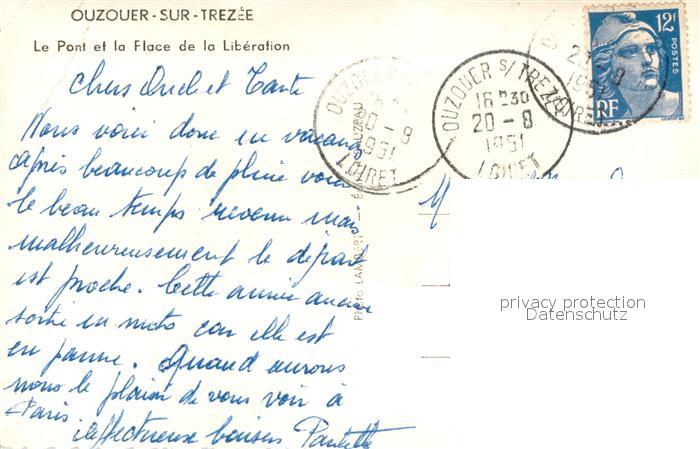 OUZOUER-SUR-TREZÉE
Le Pont et la Place de la Libération
Chers Oncle et Tante
Nous voici donc en vacances
après beaucoup de pluie voici
le beau temps revenu mais
malheureusement le départ
est proche. Cette année aucune
sortie en moto car elle est
en panne. Quand aurons
nous le plaisir de vous voir à
Paris.
affectueux baisers Paulette
Photo LAMBERT
OUZOUER
20-8
1951
LOIRET
OUZOUER S/ TREZÉE
16 H 30
20-8
1951
LOIRET
1951
12F
POSTES
RF
M
privacy protection
Datenschutz